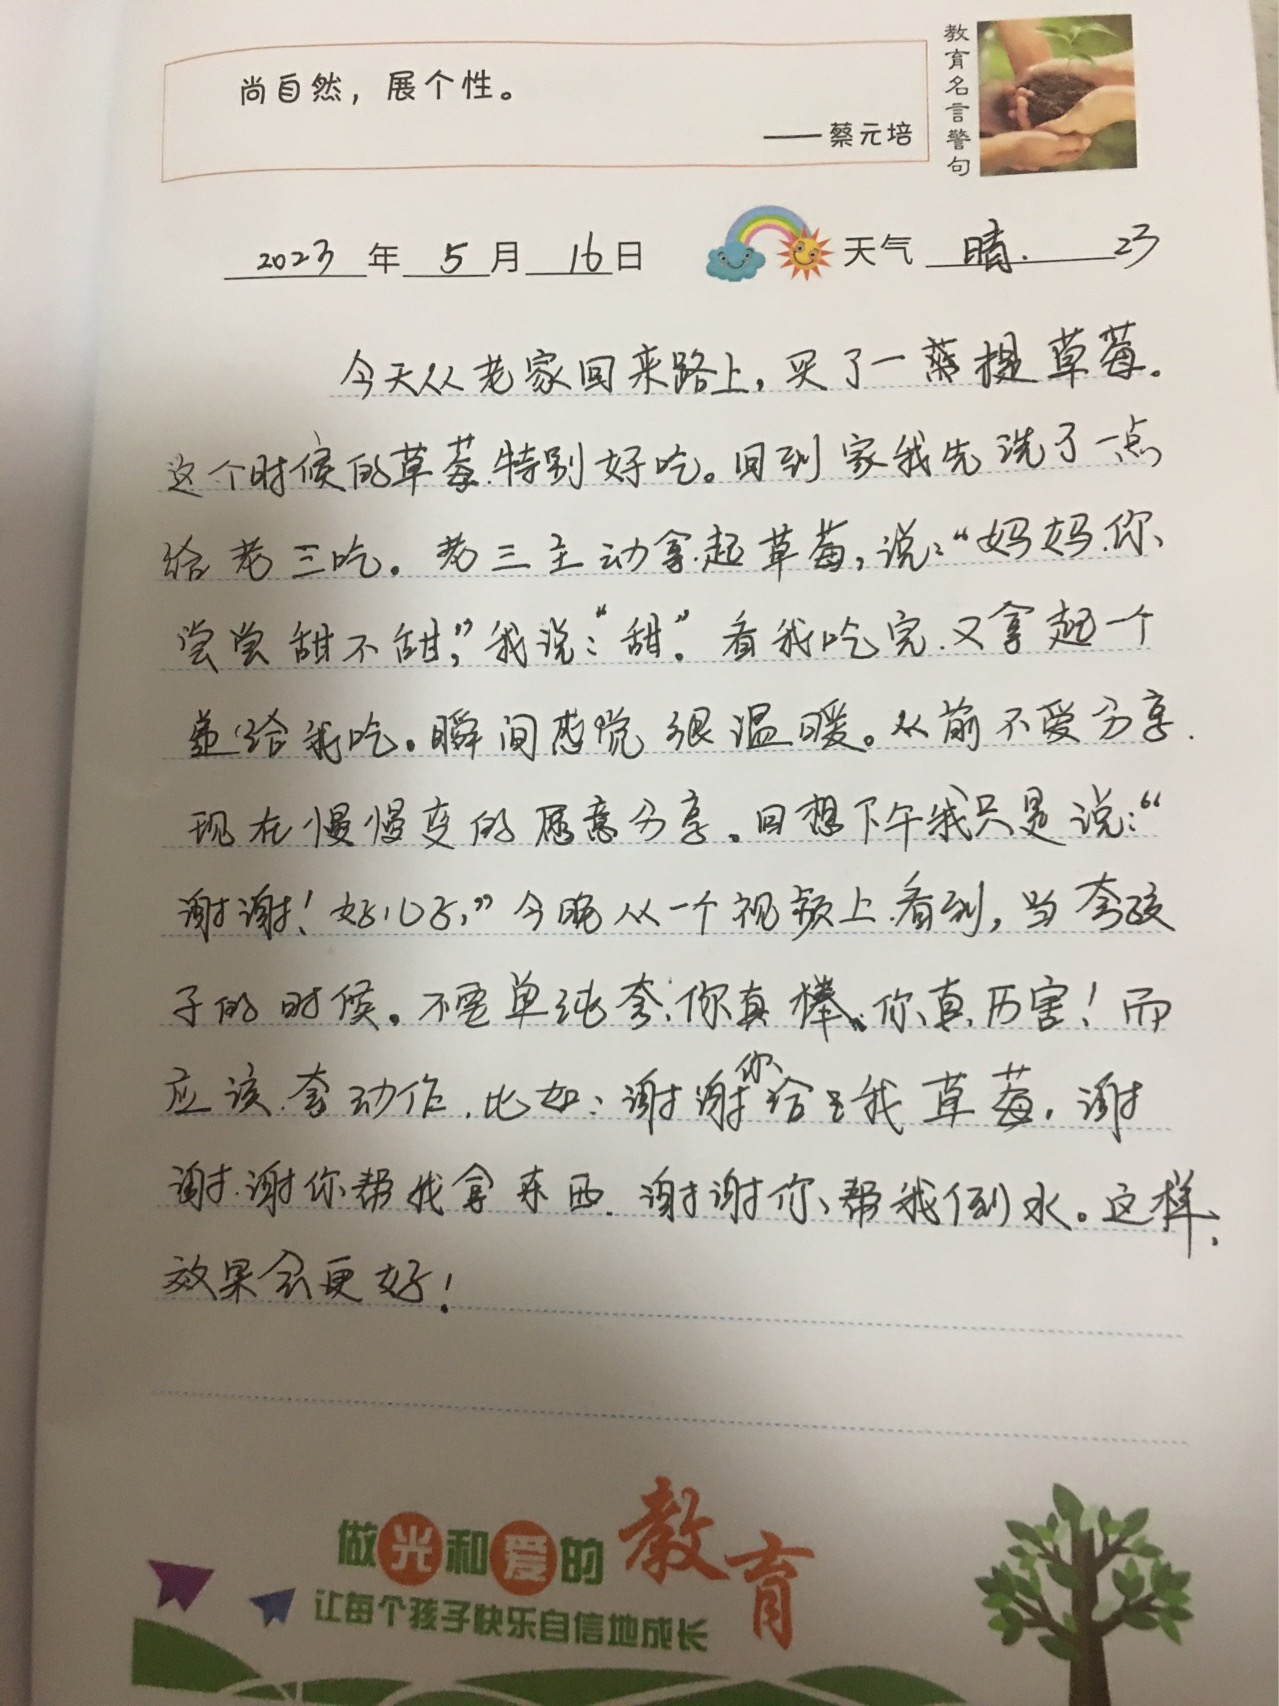 尚自然，展个性。
——蔡元培
教育名言警句
2023年5月16日 天气 晴. 23
今天从老家回来路上，买了一提草莓。
这个时候的草莓.特别好吃。回到家我先洗了一点
给老三吃。老三主动拿起草莓，说：“妈妈.你
尝尝甜不甜，”我说：“甜”。看我吃完.又拿起一个
递给我吃。瞬间感觉很温暖。从前不爱分享.
现在慢慢变的愿意分享。回想下午我只是说：“
谢谢！好心好，”今晚从一个视频上.看到，当夸孩
子的时候。不要单纯夸.你真棒.你真厉害！而
应该夸动作.比如：谢谢你给我草莓.谢
谢.谢你帮我拿东西.谢谢你帮我倒水。这样.
效果会更好！
做光和爱的教育
让每个孩子快乐自信地成长